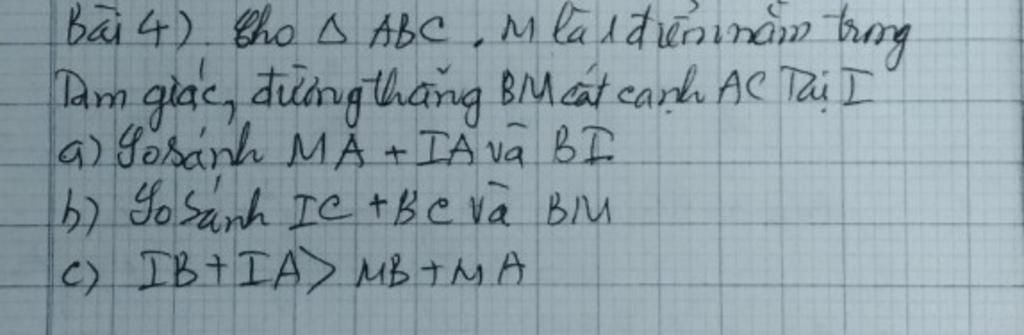 Bài 4). Cho Δ ABC, M là 1 điểm nằm trong
Tam giác, đường thẳng BM cắt cạnh AC Tại I
a) So sánh MA + IA và BI
b) So sánh IC + BC và BM
c) IB + IA > MB + MA